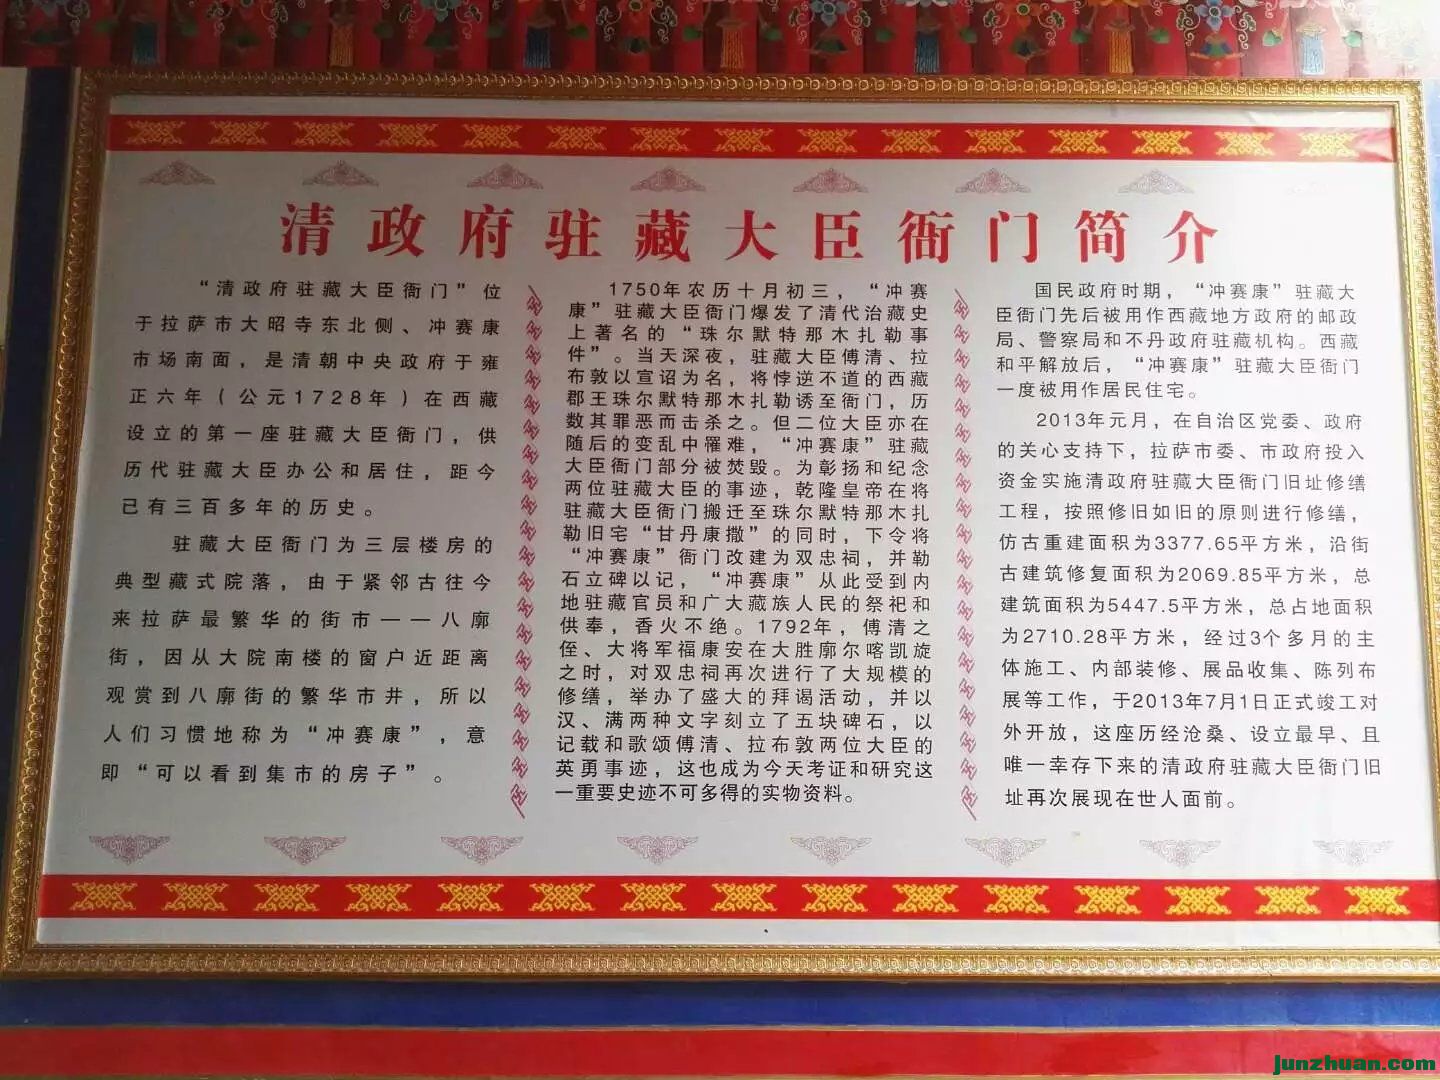 清政府驻藏大臣衙门简介
“清政府驻藏大臣衙门”位
于拉萨市大昭寺东北侧、冲赛康
市场南面，是清朝中央政府于雍
正六年（公元1728年）在西藏
设立的第一座驻藏大臣衙门，供
历代驻藏大臣办公和居住，距今
已有三百多年的历史。
驻藏大臣衙门为三层楼房的
典型藏式院落，由于紧邻古往今
来拉萨最繁华的街市——八廓
街，因从大院南楼的窗户近距离
观赏到八廓街的繁华市井，所以
人们习惯地称为“冲赛康”，意
即“可以看到集市的房子”。
1750年农历十月初三，“冲赛
康”驻藏大臣衙门爆发了清代治藏史
上著名的“珠尔默特那木扎勒事
件”。当天深夜，驻藏大臣傅清、拉
布敦以宣诏为名，将悖逆不道的西藏
郡王珠尔默特那木扎勒诱至衙门，历
数其罪恶而击杀之。但二位大臣亦在
随后的变乱中罹难，“冲赛康”驻藏
大臣衙门部分被焚毁。为彰扬和纪念
两位驻藏大臣的事迹，乾隆皇帝在将
驻藏大臣衙门搬迁至珠尔默特那木扎
勒旧宅“甘丹康撒”的同时，下令将
“冲赛康”衙门改建为双忠祠，并勒
石立碑以记，“冲赛康”从此受到内
地驻藏官员和广大藏族人民的祭祀和
供奉，香火不绝。1792年，傅清之
侄、大将军福康安在大胜廓尔喀凯旋
之时，对双忠祠再次进行了大规模的
修缮，举办了盛大的拜谒活动，并以
汉、满两种文字刻立了五块碑石，以
记载和歌颂傅清、拉布敦两位大臣的
英勇事迹，这也成为今天考证和研究这
一重要史迹不可多得的实物资料。
国民政府时期，“冲赛康”驻藏大
臣衙门先后被用作西藏地方政府的邮政
局、警察局和不丹政府驻藏机构。西藏
和平解放后，“冲赛康”驻藏大臣衙门
一度被用作居民住宅。
2013年元月，在自治区党委、政府
的关心支持下，拉萨市委、市政府投入
资金实施清政府驻藏大臣衙门旧址修缮
工程，按照修旧如旧的原则进行修缮，
仿古重建面积为3377.65平方米，沿街
古建筑修复面积为2069.85平方米，总
建筑面积为5447.5平方米，总占地面积
为2710.28平方米，经过3个多月的主
体施工、内部装修、展品收集、陈列布
展等工作，于2013年7月1日正式竣工对
外开放，这座历经沧桑、设立最早、且
唯一幸存下来的清政府驻藏大臣衙门旧
址再次展现在世人面前。
junzhuan.com